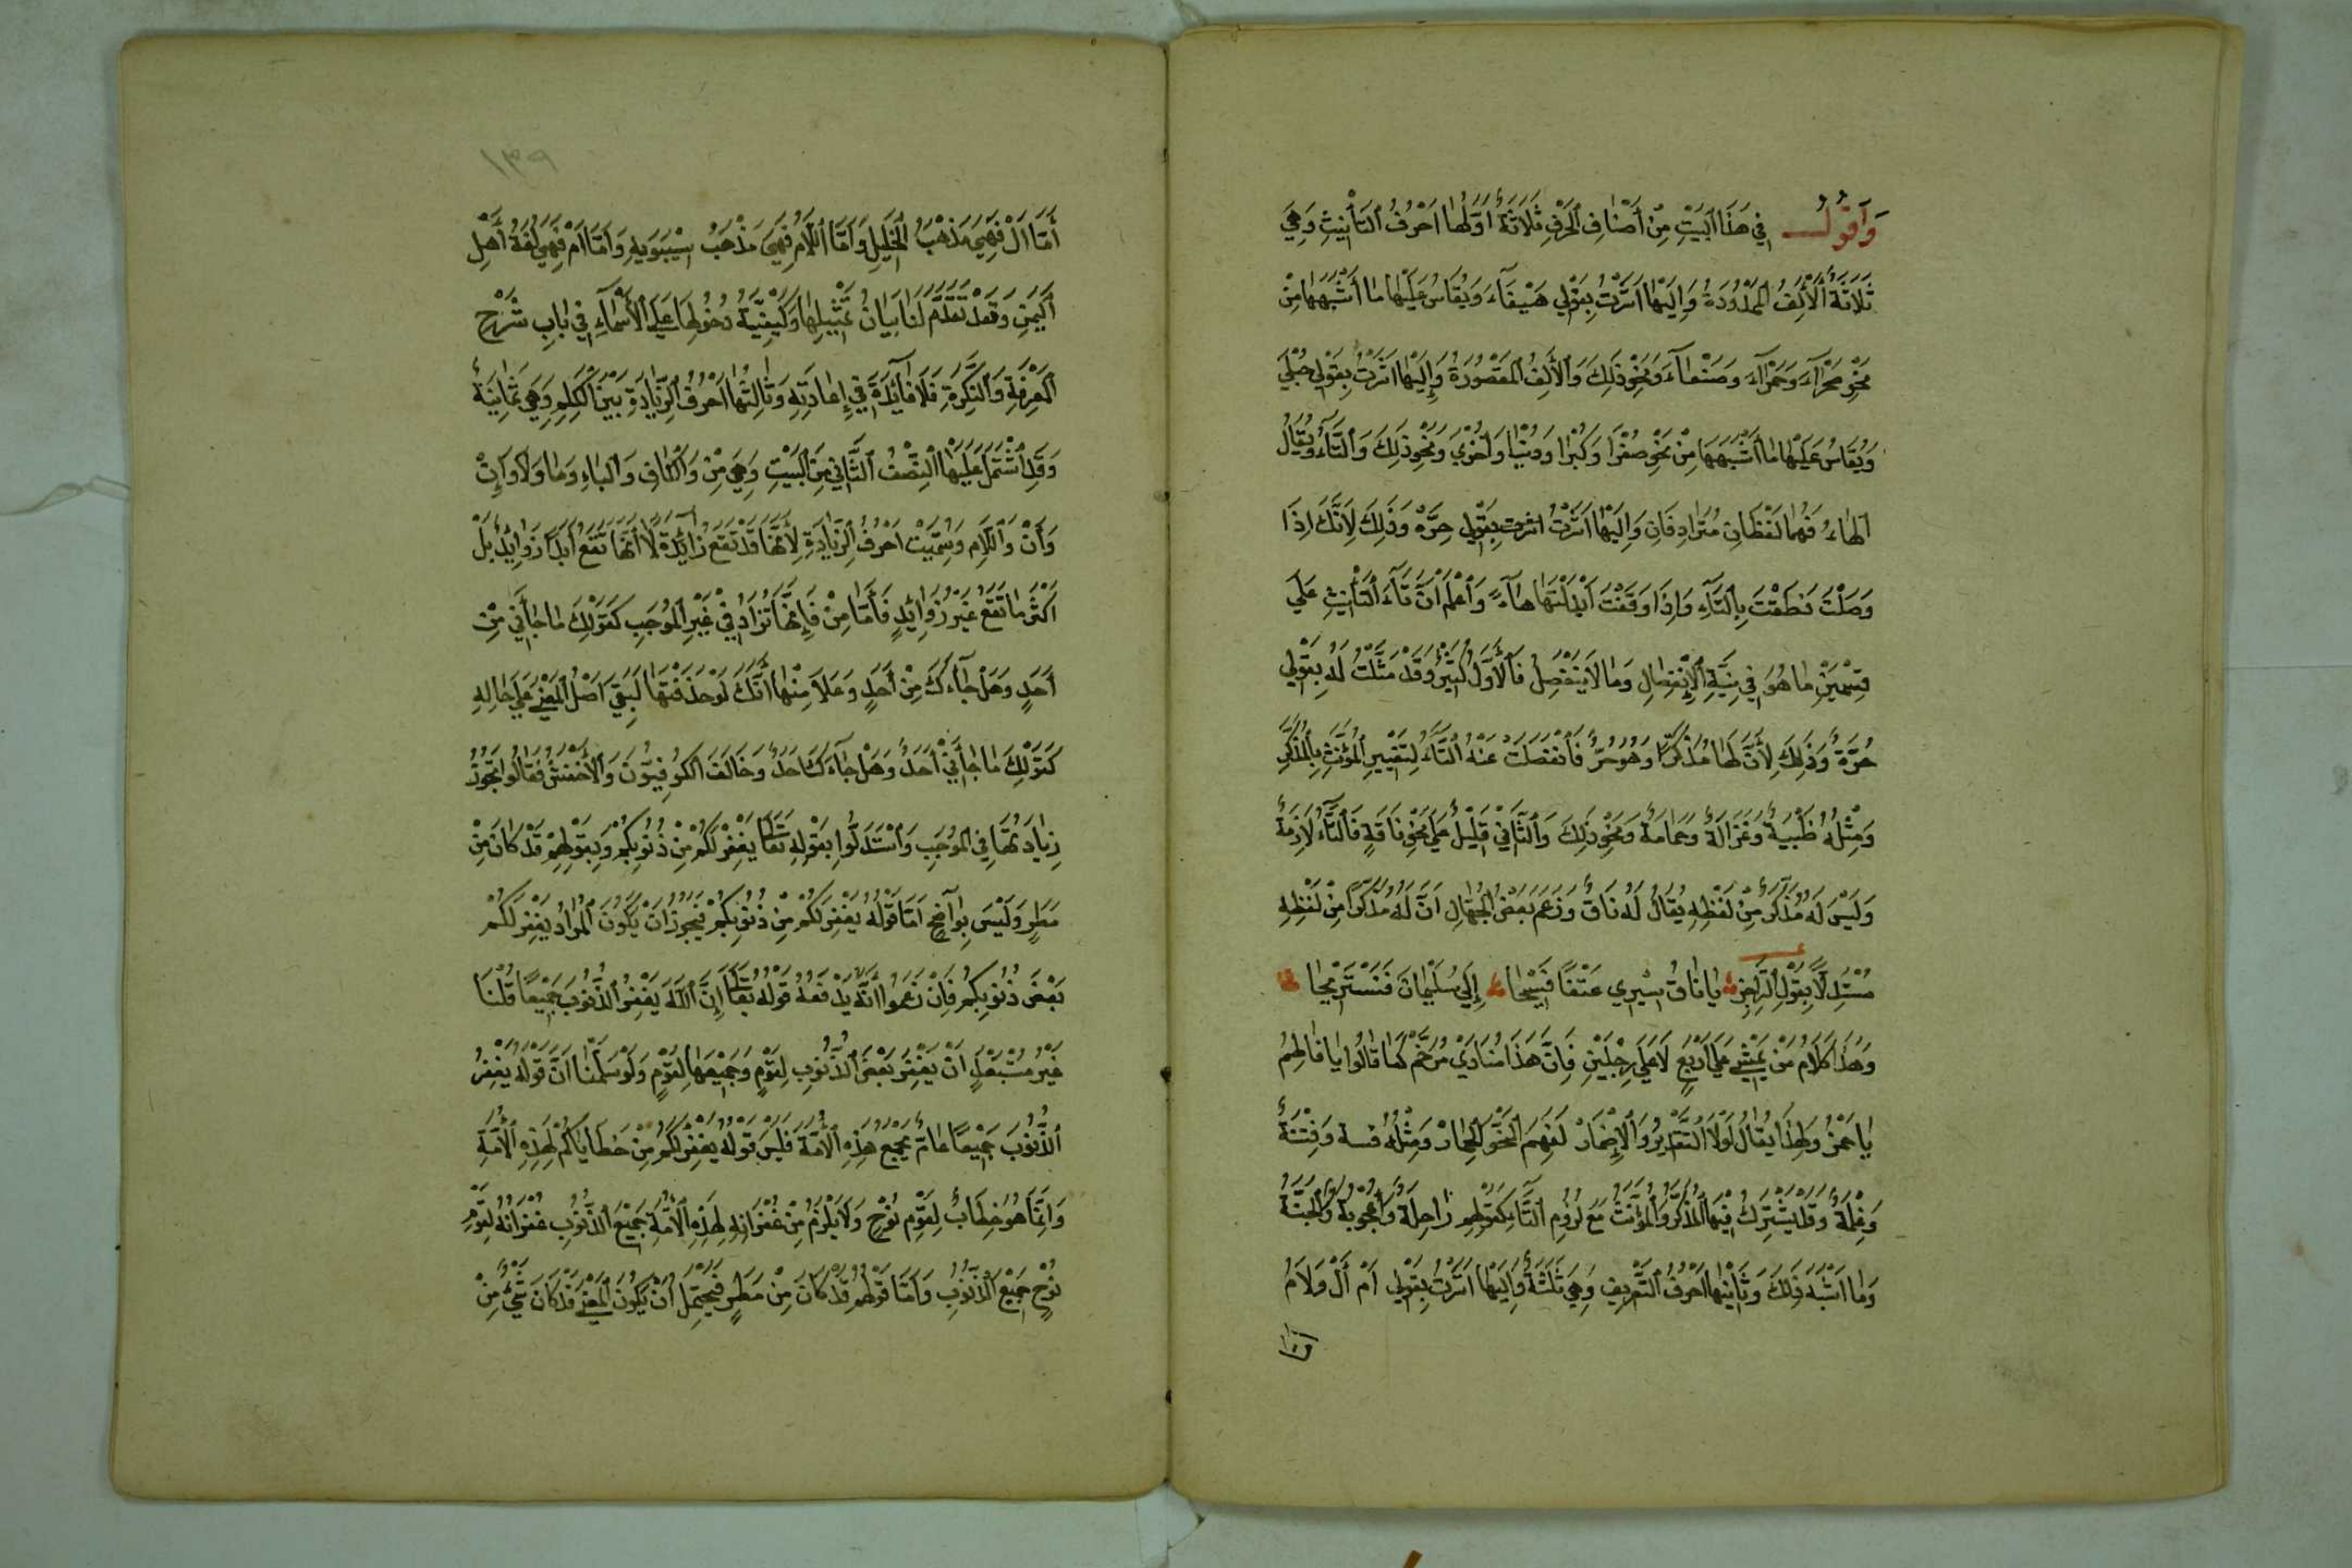 وَأَقُولُ فِي هَذَا الْبَيْتِ مِنْ أَصْنَافِ الْحَرْفِ ثَلَاثَةٌ أَوَّلُهَا أَحْرُفُ التَّأْنِيثِ وَهِيَ
ثَلَاثَةٌ الْأَلِفُ الْمَمْدُودَةُ وَإِلَيْهَا أَشَرْتُ بِقَوْلِي هَيْفَآءَ وَيُقَاسُ عَلَيْهَا مَا أَشْبَهَهَا مِنْ
نَحْوِ صَحْرَآءَ وَحَمْرَآءَ وَصَنْعَآءَ وَنَحْوِ ذَلِكَ وَالْأَلِفُ الْمَقْصُورَةُ وَإِلَيْهَا أَشَرْتُ بِقَوْلِي حُبْلَى
وَيُقَاسُ عَلَيْهَا مَا أَشْبَهَهَا مِنْ نَحْوِ صُغْرَا وَكُبْرَا وَدُنْيَا وَأُخْرَى وَنَحْوِ ذَلِكَ وَالتَّآءُ وَيُقَالُ
الْهَاءُ فَهُمَا لَفْظَانِ مُتَرَادِفَانِ وَإِلَيْهَا أَشَرْتُ اشرت بِقَوْلِي حرَّهْ وَذَلِكَ لِأَنَّكَ إِذَا
وَصَلْتَ نَطَقْتَ بِالتَّآءِ وَإِذَا وَقَفْتَ أَبْدَلْتَهَا هَآءً وَاعْلَمْ أَنَّ تَآءَ التَّأْنِيثِ عَلَى
قِسْمَيْنِ مَا هُوَ فِي نِيَّةِ الْإِنْفِصَالِ وَمَا لَا يَنْفَصِلُ فَالْأَوَّلُ كَثِيرٌ وَقَدْ مَثَّلْتُ لَهُ بِقَوْلِي
حُرَّةٌ وَذَلِكَ لِأَنَّ لَهَا مُذَكَّرًا وَهُوَ حُرٌّ فَانْفَصَلَتْ عَنْهُ التَّآءُ لِتَغْيِيرِ الْمُؤَنَّثِ بِالْمُذَكَّرِ
وَمِثْلُهُ ظَبْيَةٌ وَغَزَالَةٌ وَحَمَامَةٌ وَنَحْوِ ذَلِكَ وَالثَّانِي قَلِيلٌ عَلَى نَحْوِ نَاقَةٍ فَالتَّآءُ لَازِمَةٌ
وَلَيْسَ لَهُ مُذَكَّرٌ مِنْ لَفْظِهِ يُقَالُ لَهُ نَاقٌ وَزَعَمَ بَعْضُ الْجُهَّالِ أَنَّ لَهُ مُذَكَّرًا مِنْ لَفْظِهِ
مُسْتَدِلًّا بِقَوْلِ الرَّاجِزِ يَا نَاقُ سِيرِي عَنَقًا فَسِيحَا إِلَى سُلَيْمَانَ فَنَسْتَرِيحَا
وَهَذَا كَلَامُ مَنْ يَمْشِي عَلَى أَرْبَعٍ لَا عَلَى رِجْلَيْنِ فَإِنَّ هَذَا مُنَادَى مُرَخَّمٌ كَمَا قَالُوا يَا فَاطِمُ
يَا حَمْزُ وَلِهَذَا يُقَالُ لَوْلَا التَّقْدِيرُ وَالْإِضْمَارُ لَفَهِمَ النَّحْوَ الْحِمَارْ وَمِثْلُهُ وَفِتْنَةٌ
وَنِعْمَةٌ وَقَدْ يَشْتَرِكُ فِيهَا الْمُذَكَّرُ وَالْمُؤَنَّثُ مَعَ لُزُومِ التَّآءِ كَقَوْلِهِمْ رَاحِلَةٌ وَأُعْجُوبَةٌ وَالْجَنَّةُ
وَمَا أَشْبَهَ ذَلِكَ وَثَانِيهَا أَحْرُفُ التَّعْرِيفِ وَهِيَ ثَلَثَةٌ وَإِلَيْهَا أَشَرْتُ بِقَوْلِي أَمْ أَلْ وَلَامُ
١٣٩
أَمَّا أَلْ فَهِيَ مَذْهَبُ الْخَلِيلِ وَأَمَّا اللَّامُ فَهِيَ مَذْهَبُ سِيبَوَيْهِ وَأَمَّا أَمْ فَهِيَ لُغَةُ أَهْلِ
الْيَمَنِ وَقَدْ تَقَدَّمَ لَنَا بَيَانُ تَمْثِيلِهَا وَكَيْفِيَّةُ دُخُولِهَا عَلَى الْأَسْمَآءِ فِي بَابِ شَرْحِ
الْمَعْرِفَةِ وَالنَّكِرَةِ فَلَا فَآئِدَةَ فِي إِعَادَتِهِ وَثَالِثُهَا أَحْرُفُ الزِّيَادَةِ بَيْنَ الْكَلِمِ وَهِيَ ثَمَانِيَةٌ
وَقَدِ اشْتَمَلَ عَلَيْهَا النِّصْفُ الثَّانِي مِنَ الْبَيْتِ وَهِيَ مِنْ وَالْكَافِ وَالْبَاءِ وَمَا وَلَا وَإِنْ
وَأَنْ وَاللَّامِ وَسُمِّيَتْ أَحْرُفُ الزِّيَادَةِ لِأَنَّهَا قَدْ تَقَعُ زَآئِدَةً لَا أَنَّهَا تَقَعُ أَبَدًا زَوَايِدُ بَلْ
أَكْثَرُ مَا تَقَعُ غَيْرَ زَوَائِدٍ فَأَمَّا مِنْ فَإِنَّهَا تُزَادُ فِي غَيْرِ الْمُوجَبِ كَقَوْلِكَ مَا جَأَنِي مِنْ
أَحَدٍ وَهَلْ جَآءَكَ مِنْ أَحَدٍ وَعَلَامِنْهَا أَنَّكَ لَوْ حَذَفْتَهَا لَبَقِيَ أَصْلُ الْمَعْنَى عَلَى حَالِهِ
كَقَوْلِكَ مَا جَأَنِي أَحَدٌ وَهَلْ جَآءَكَ أحَدٌ وَخَالَفَ الْكُوفِيُّونَ وَالْأَخْفَشُ فَقَالُوا تَجُوزُ
زِيَادَتُهَا فِي الْمُوجَبِ وَاسْتَدَلُّوا بِقَوْلِهِ تَعَالَى يَغْفِرْ لَكُمْ مِنْ ذُنُوبِكُمْ وَبِقَوْلِهِمْ قَدْ كَانَ مِنْ
مَطَرٍ وَلَيْسَ بِوَاضِحٍ أَمَّا قَوْلُهُ يَغْفِرْ لَكُمْ مِنْ ذُنُوبِكُمْ فَيَجُوزُ أَنْ يَكُونَ الْمُرَادُ يَغْفِرْ لَكُمْ
بَعْضَ ذُنُوبِكُمْ فَإِنْ زَعَمُوا أَنَّهُ يَدْفَعُهُ قَوْلُهُ تَعَالَى إِنَّ اللَّهَ يَغْفِرُ الذُّنُوبَ جَمِيعًا قُلْنَا
غَيْرُ مُسْتَبْعَدٍ أَنْ يَغْفِرَ بَعْضَ الذُّنُوبِ لِقَوْمٍ وَجَمِيعَهَا لِقَوْمٍ وَلَوْ سَلَّمْنَا أَنَّ قَوْلَهُ يَغْفِرُ
الذُّنُوبَ جَمِيعًا عَامٌّ بِجَمِيعِ هَذِهِ الْأُمَّةِ فَلَيْسَ قَوْلُهُ يَغْفِرْ لَكُمْ مِنْ خَطَايَاكُمْ لِهَذِهِ الْأُمَّةِ
وَإِنَّمَا هُوَ خِطَابٌ لِقَوْمِ نُوحٍ وَلَا يَلْزَمُ مِنْ غُفْرَانِهِ لِهَذِهِ الْأُمَّةِ جَمِيعَ الذُّنُوبِ غُفْرَانُهُ لِقَوْمِ
نُوحٍ جَمِيعَ الذُّنُوبِ وَأَمَّا قَوْلُهُمْ قَدْ كَانَ مِنْ مَطَرٍ فَيَحْتَمِلُ أَنْ يَكُونَ الْمَعْنَى قَدْ كَانَ شَيْءٌ مِنْ